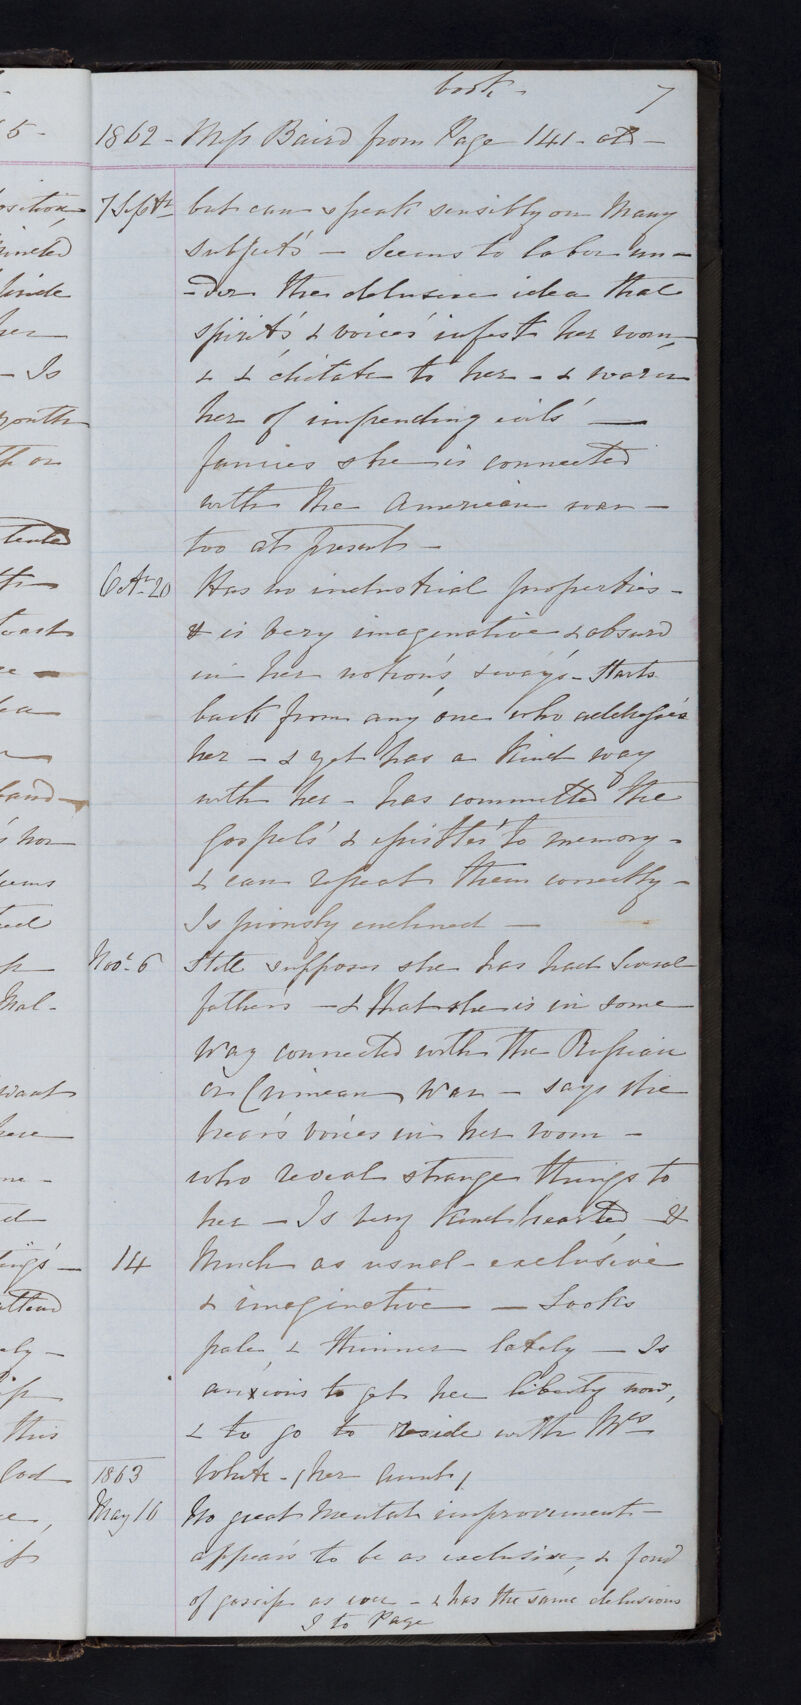 book - 7
1862 - Miss Baird from Page 141 - old -
7 Septr but can speak sensibly on many
subjects - Seems to labor un-
-der the delusive idea that
spirits & voices infest her room,
& & dictate to her - & warn
her of impending evils -
fancies she is connected
with the American war -
too at present -
Octr 20 Has no industrial properties -
& is very imaginative & absurd
in her notions & ways - Starts
back from any one who addresses
her - & yet has a kind way
with her - has committed the
gospels & epistles to memory -
& can repeat them correctly -
Is piously inclined -
Novr 6 Still supposes she has had several
fathers - & that she is in some
way connected with the Russian
or Crimean War - says she
hears voices in her room -
who reveal strange things to
her - Is very kind hearted - &
14 Much as usual - exclusive
& imaginative - Looks
pale & thinner lately - Is
anxious to get her liberty now,
& to go to reside with Mrs
1863 White - (her Aunt)
May 16 No great Mental improvement -
appears to be as exclusive, & fond
of gossip as ever - & has the same delusions
to Page